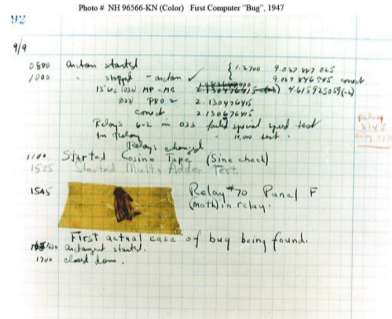 Photo # NH 96566-KN (Color) First Computer "Bug", 1947
92
9/9
0800 antan started
1000 " stopped - antan ✓ { 1.2700 9.037 847 025
9.037 846 995 correct
13" uc (032) MP - MC 4.615925059(-2)
(033) PRO 2 2.130476415
correct 2.130676415
Relays 6-2 in 033 failed special speed test
in relay 10.000 test.
Relays changed
1100 Started Cosine Tape (Sine check)
1525 Started Multi Adder Test.
1545 Relay #70 Panel F
(moth) in relay.
First actual case of bug being found.
antangent started.
1700 closed down.